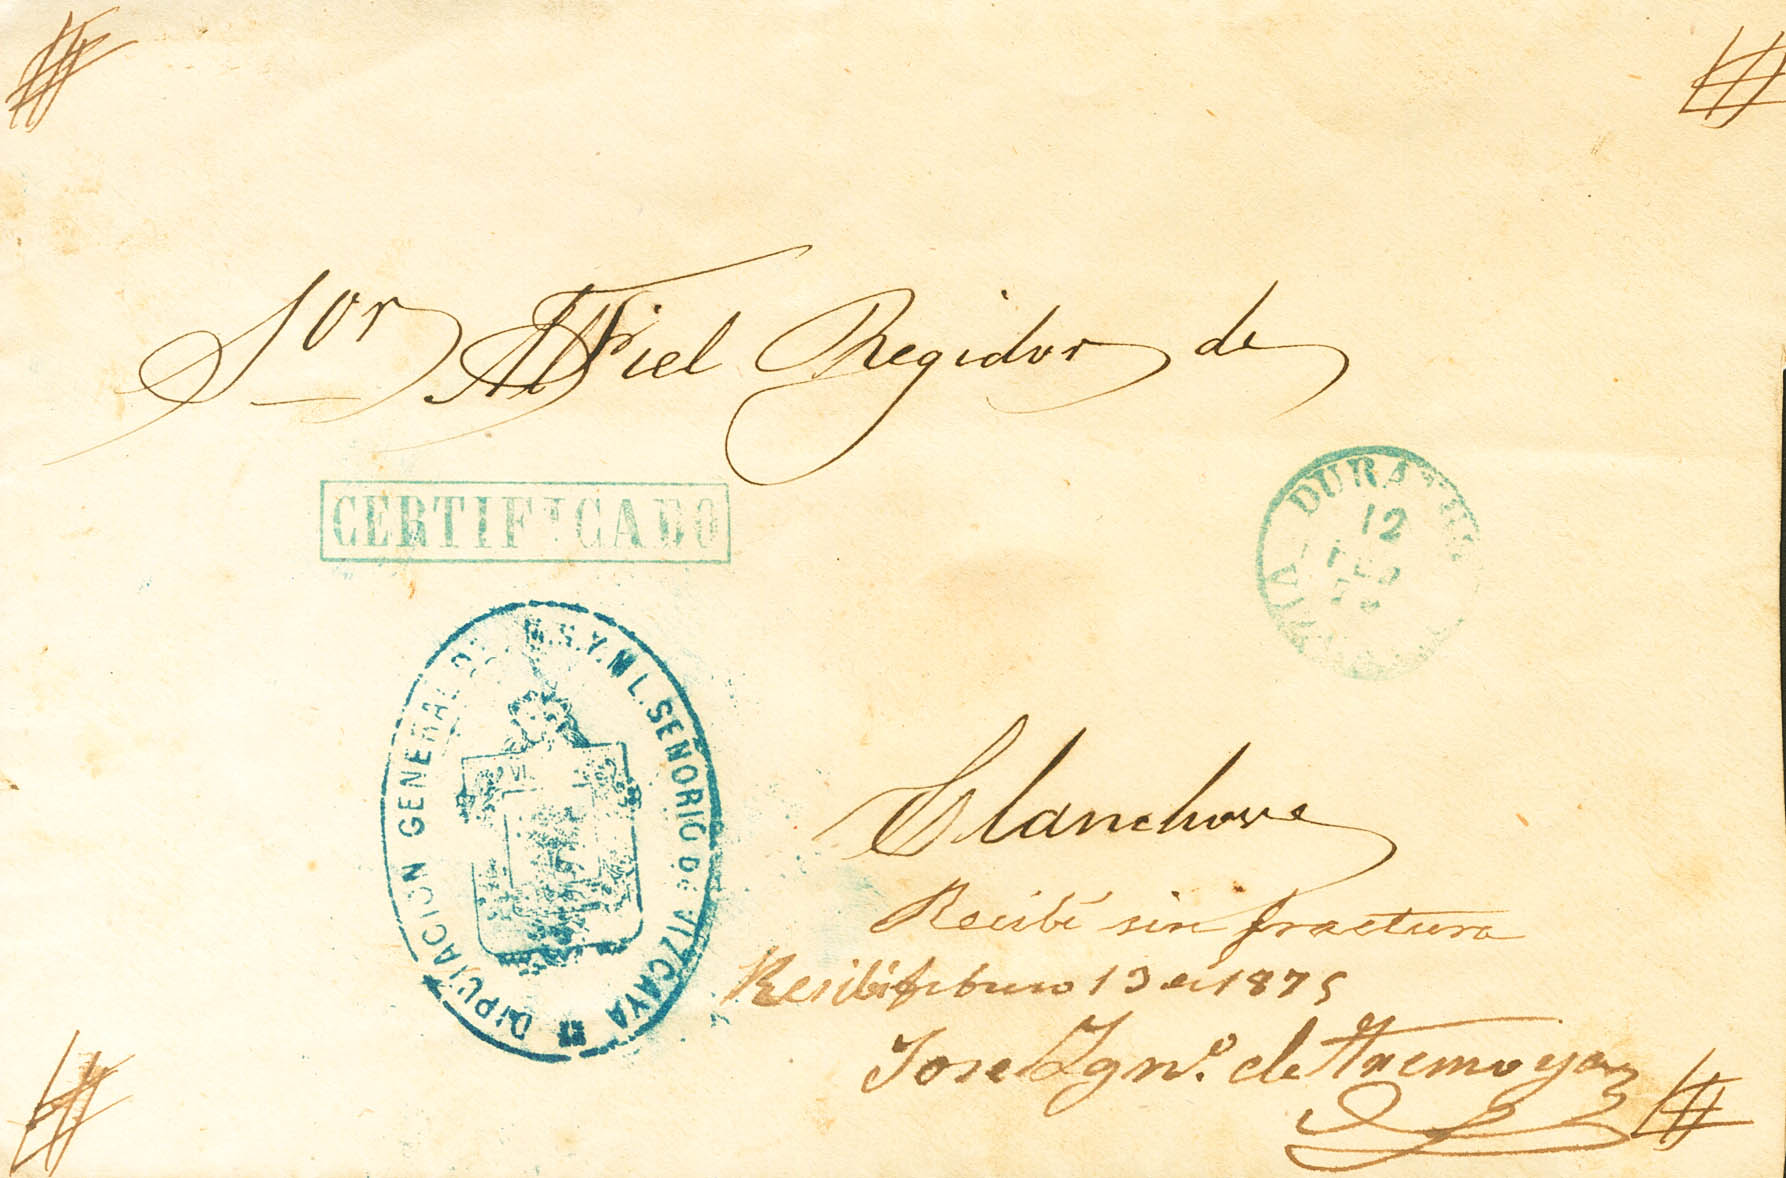 Sor Fiel Regidor de
CERTIFICADO
DURANGO
12
FEB
DIPUTACION GENERAL DEL M.N.Y.M.L. SEÑORIO DE VIZCAYA
Elanchove
Recibí sin fractura
Recibí febrero 13 de 1875
Jose Ygn.o de